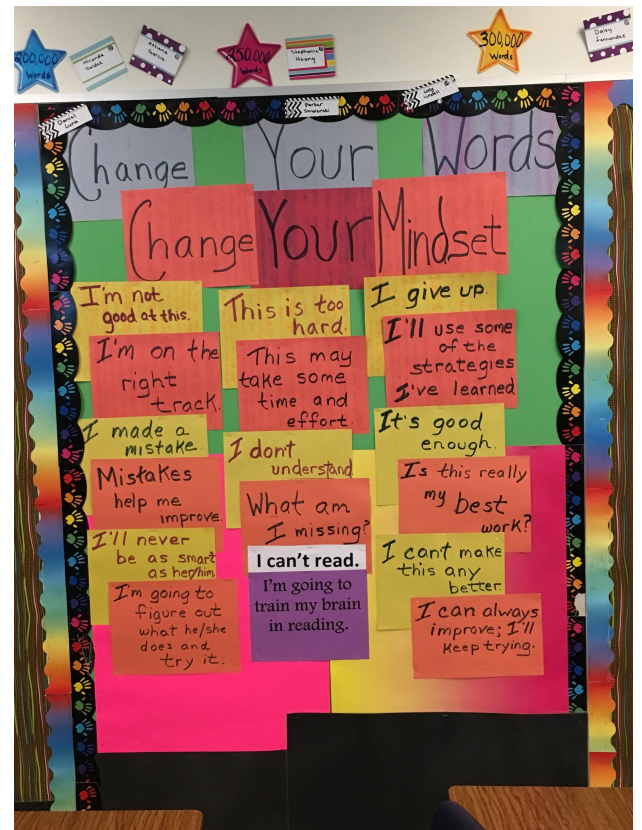 200,000
Words
Miranda
Valdez
250,000
Words
Stephanie
Hoang
300,000
Words
Daisy
Fernandez
Daniel
Luna
Parker
Change Your Words
Change Your Mindset
I'm not
good at this.
I'm on the
right
track.
I made a
mistake.
Mistakes
help me
improve.
I'll never
be as smart
as her/him.
I'm going to
figure out
what he/she
does and
try it.
This is too
hard.
This may
take some
time and
effort.
I dont
understand
What am
I missing?
I can't read.
I'm going to
train my brain
in reading.
I give up.
I'll use some
of the
strategies
I've learned
It's good
enough.
Is this really
my best
work?
I can't make
this any
better.
I can always
improve; I'll
keep trying.